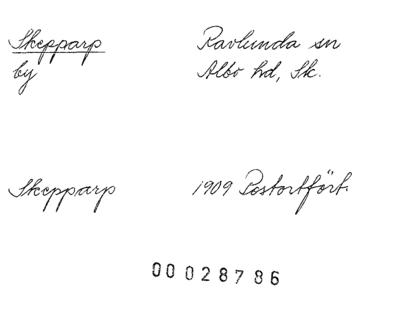 Skepparp Ravlunda sn
by Albo hd, Sk.
Skepparp 1909 Postortfört.
00028786